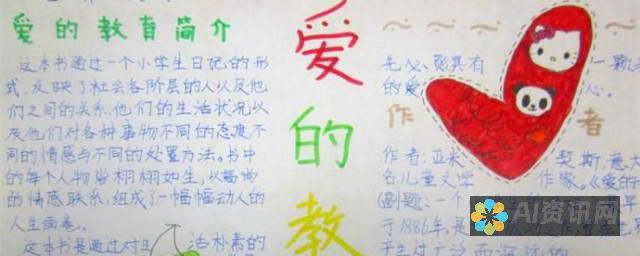 爱的教育简介
这本书通过一个小学生日记的形
式,反映了社会各阶层的人以及他
们之间的关系.他们的生活状况以
及他们对各种事物不同的态度不
同的情感与不同的处置方法。书中
的每个人物皆栩栩如生,以
的情感联系,组成了一幅幅动人的
人生画卷。
这本书是通过对 活朴素的
爱
的
教
具有 一颗
的爱 心。
作 者
作者:亚米 契斯,意
名儿童文学 作家。《爱的
(副题:一个 早
于1886年,是
AI资讯网